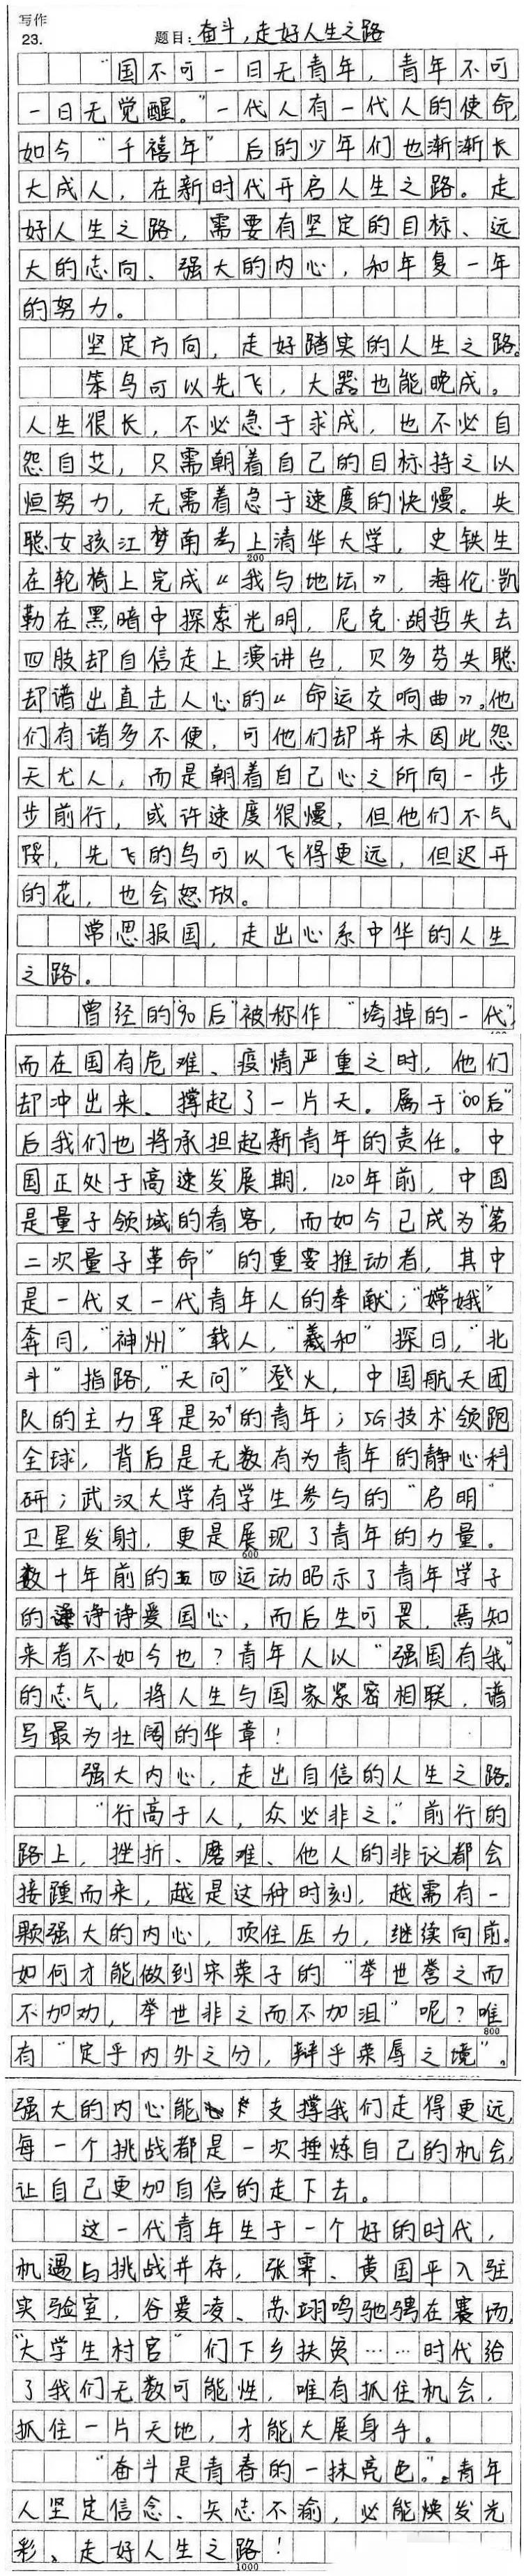 写作
23.
题目:奋斗,走好人生之路
"国不可一日无青年,青年不可
一日无觉醒。"一代人有一代人的使命,
如今"千禧年"后的少年们也渐渐长
大成人,在新时代开启人生之路。走
好人生之路,需要有坚定的目标、远
大的志向、强大的内心,和年复一年
的努力。
坚定方向,走好踏实的人生之路。
笨鸟可以先飞,大器也能晚成。
人生很长,不必急于求成,也不必自
怨自艾,只需朝着自己的目标持之以
恒努力,无需着急于速度的快慢。失
聪女孩江梦南考上清华大学,史铁生
200
在轮椅上完成《我与地坛》,海伦·凯
勒在黑暗中探索光明,尼克·胡哲失去
四肢却自信走上演讲台,贝多芬失聪
却谱出直击人心的《命运交响曲》。他
们有诸多不便,可他们却并未因此怨
天尤人,而是朝着自己心之所向一步
步前行,或许速度很慢,但他们不气
馁,先飞的鸟可以飞得更远,但迟开
的花,也会怒放。
常思报国,走出心系中华的人生
之路。
曾经的"90后"被称作"垮掉的一代",
而在国有危难、疫情严重之时,他们
却冲出来、撑起了一片天。属于"00后"
后我们也将承担起新青年的责任。中
国正处于高速发展期,120年前,中国
是量子领域的看客,而如今已成为"第
二次量子革命"的重要推动者,其中
是一代又一代青年人的奉献;"嫦娥"
奔月,"神州"载人,"羲和"探日,"北
斗"指路,"天问"登火,中国航天团
队的主力军是30+的青年;5G技术领跑
全球,背后是无数有为青年的静心科
研;武汉大学有学生参与的"启明"
卫星发射,更是展现了青年的力量。
600
数十年前的五四运动昭示了青年学子
的谆谆爱国心,而后生可畏,焉知
来者不如今也?青年人以"强国有我"
的志气,将人生与国家紧密相联,谱
写最为壮阔的华章!
强大内心,走出自信的人生之路。
"行高于人,众必非之。"前行的
路上,挫折、磨难、他人的非议都会
接踵而来,越是这种时刻,越需有一
颗强大的内心,顶住压力,继续向前。
如何才能做到宋荣子的"举世誉之而
不加劝,举世非之而不加沮"呢?唯
800
有"定乎内外之分,辩乎荣辱之境"。
强大的内心能支撑我们走得更远,
每一个挑战都是一次捶炼自己的机会,
让自己更加自信的走下去。
这一代青年生于一个好的时代,
机遇与挑战并存,张霁、黄国平入驻
实验室,谷爱凌、苏翊鸣驰骋在赛场,
"大学生村官"们下乡扶贫……时代给
了我们无数可能性,唯有抓住机会,
抓住一片天地,才能大展身手。
"奋斗是青春的一抹亮色。"青年
人坚定信念、矢志不渝,必能焕发光
彩、走好人生之路!
1000